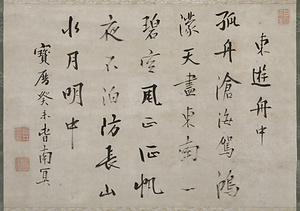 東遊舟中
孤舟滄海駕鴻
濛天盡東南一
碧空風正征帆
夜不泊防長山
水月明中
寶曆癸未魯南冥